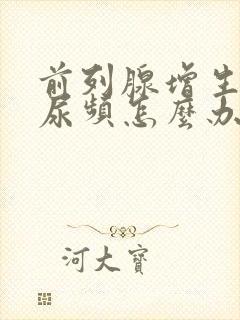 前列腺增生
尿頻怎麼办
河大寶